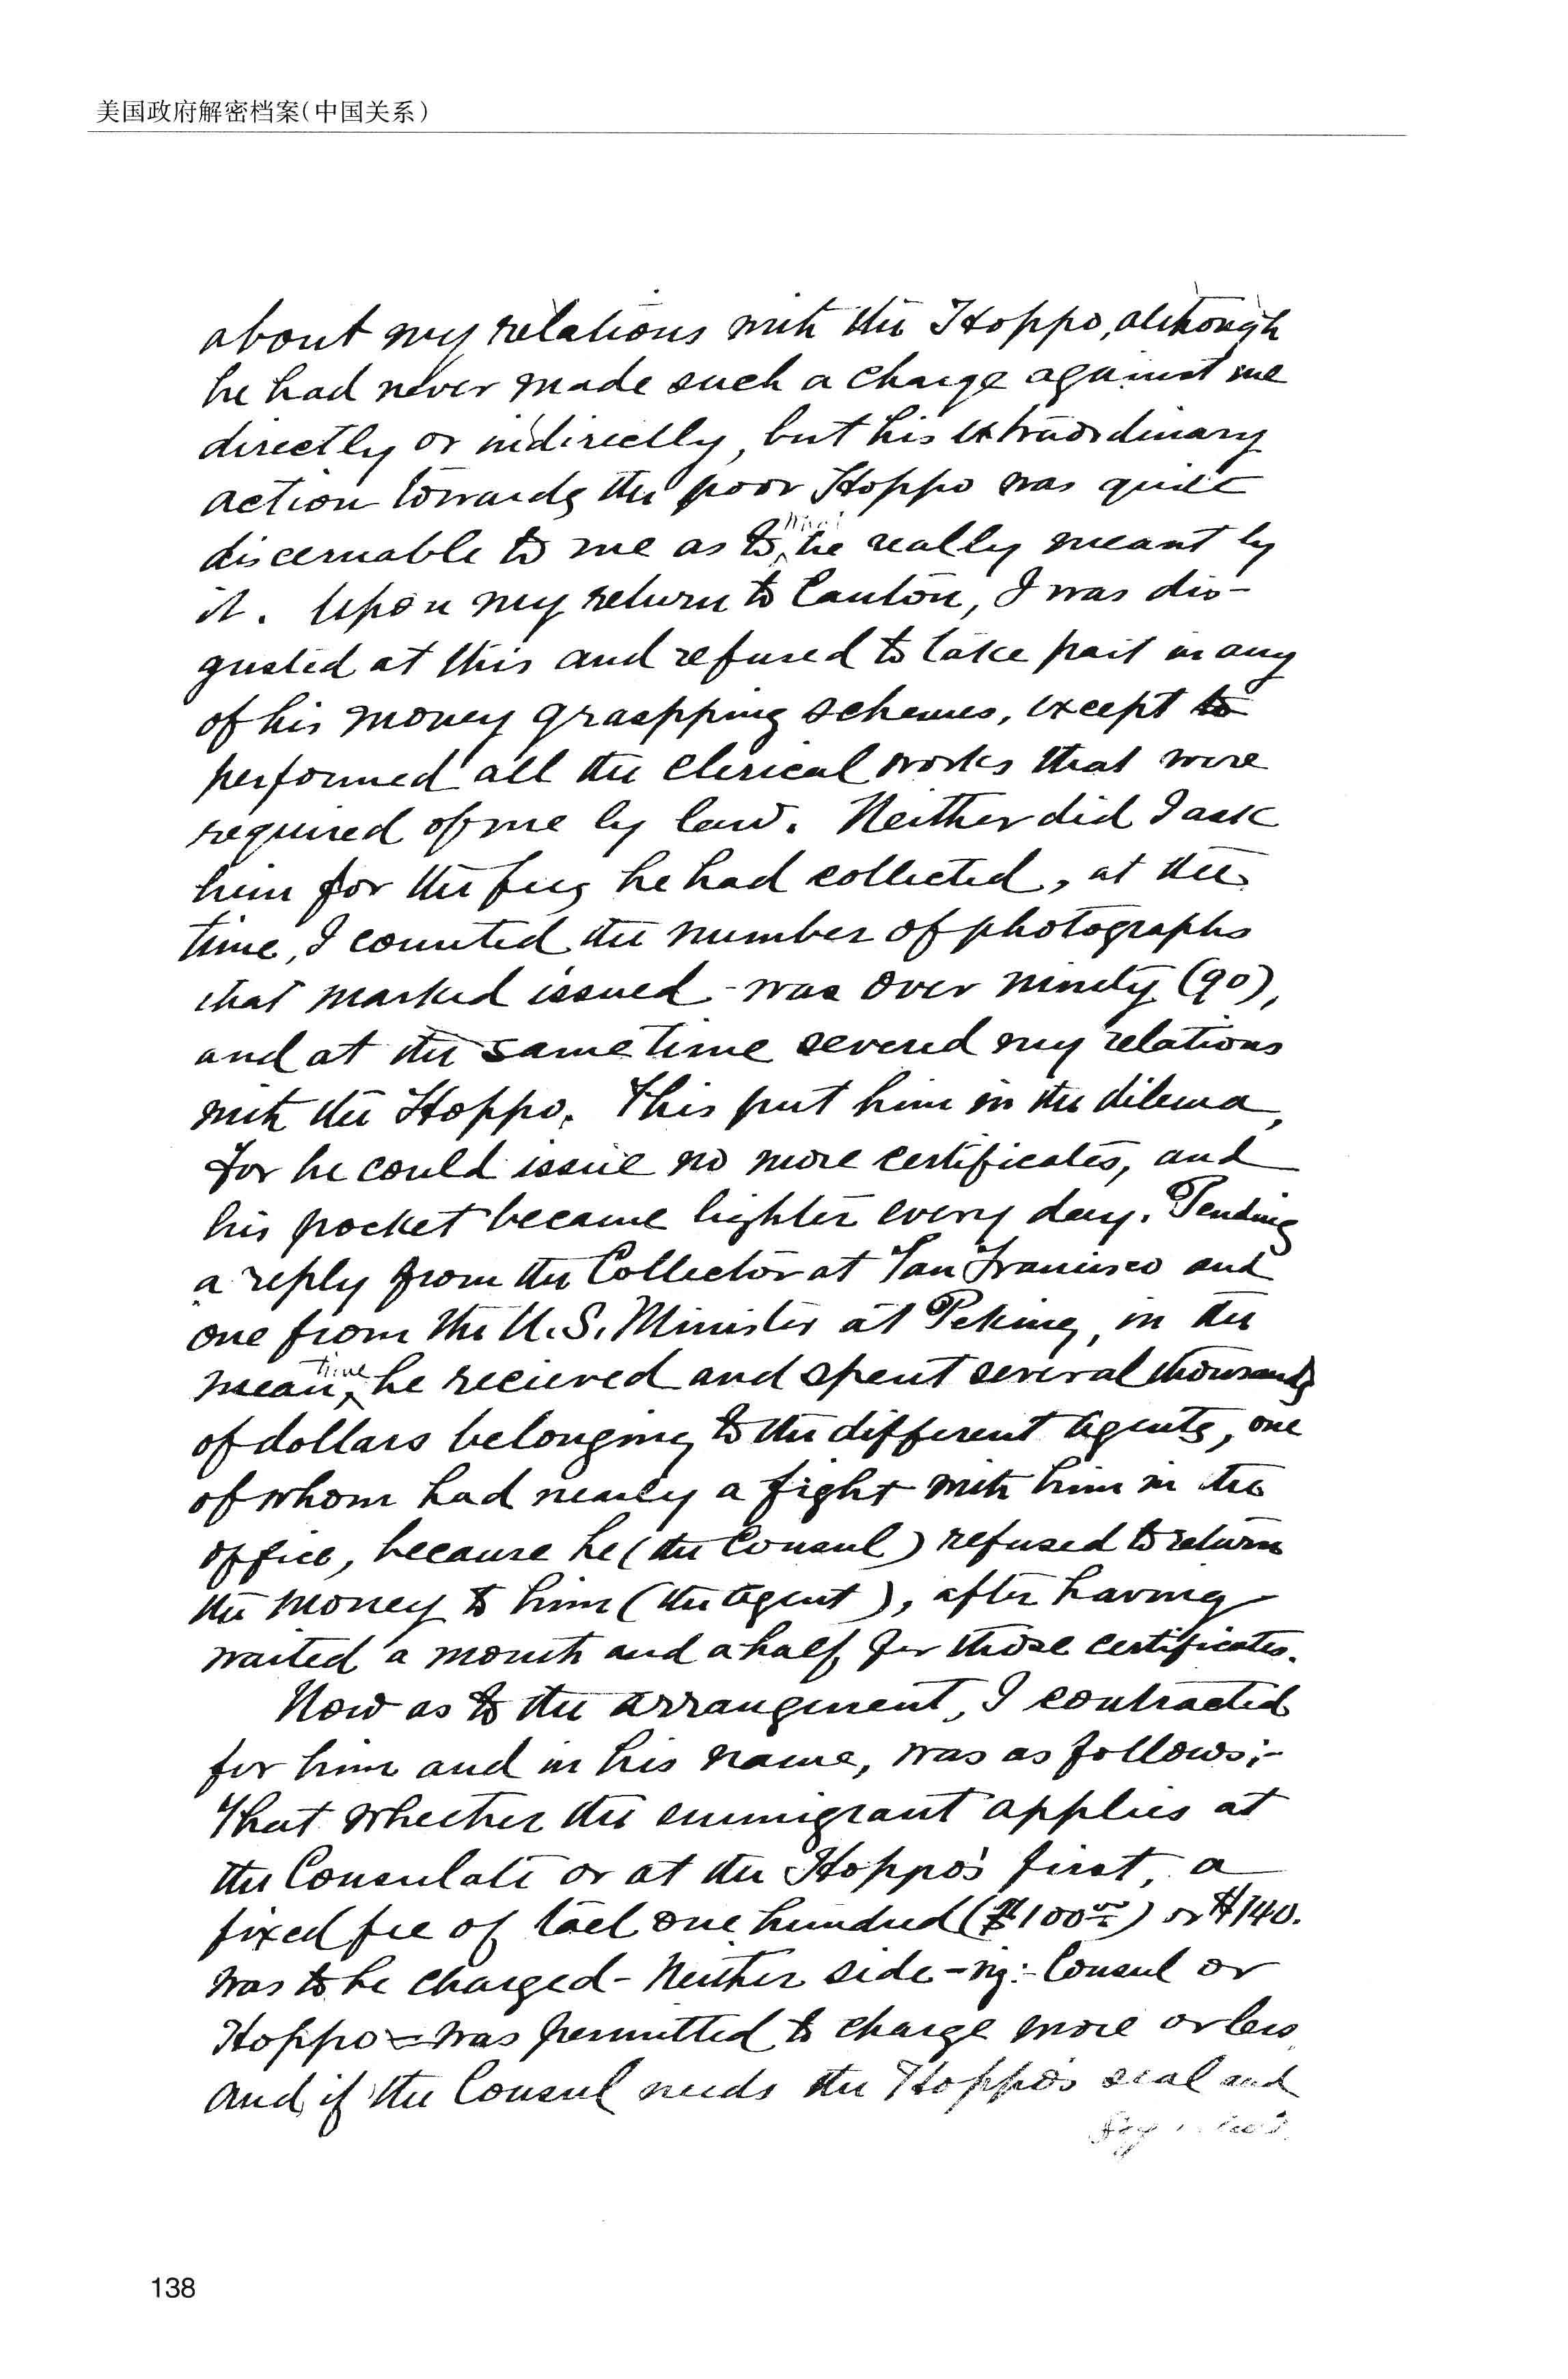 美国政府解密档案(中国关系)
about my relations with the Hoppo, although
he had never made such a charge against me
directly or indirectly, but his extraordinary
action towards the poor Hoppo was quite
discernable to me as to what he really meant by
it. Upon my return to Canton, I was dis-
gusted at this and refused to take part in any
of his money graspping schemes, except to
performed all the clerical works that were
required of me by law. Neither did I ask
him for the fees he had collected, at the
time, I counted the number of photographs
that marked issued - was over ninety (90),
and at the same time severed my relations
with the Hoppo. This put him in the dilema,
for he could issue no more certificates, and
his pocket became lighter every day. Pending
a reply from the Collector at San Francisco and
one from the U.S. Minister at Peking, in the
mean time he recieved and spent several thousands
of dollars belonging to the different agents, one
of whom had nearly a fight with him in the
office, because he (the Consul) refused to return
the money to him (the agent), after having
waited a month and a half for those certificates.
Now as to the arrangment, I contracted
for him and in his name, was as follows:-
That whether the emmigrant applies at
the Consulate or at the Hoppo's first, a
fixed fee of tael one hundred (₮100⁰⁰) or $140.
was to be charged - Neither side - viz:- Consul or
Hoppo = was permitted to charge more or less
and, if the Consul needs the Hoppo's seal and
138